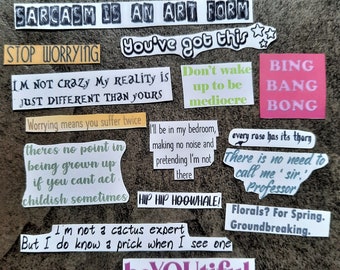 SARCASM IS AN ART FORM
STOP WORRYING
You've got this
I'M NOT CRAZY MY REALITY IS
JUST DIFFERENT THAN YOURS
Don't wake
up to be
mediocre
BING
BANG
BONG
Worrying means you suffer twice
I'll be in my bedroom,
making no noise and
pretending I'm not
there
every rose has its thorn
theres no point in
being grown up
if you cant act
childish sometimes
There is no need to
call me 'sir,'
Professor
HIP HIP HOOWHALE!
Florals? For Spring.
Groundbreaking.
I'm not a cactus expert
But I do know a prick when I see one
beYOUtiful